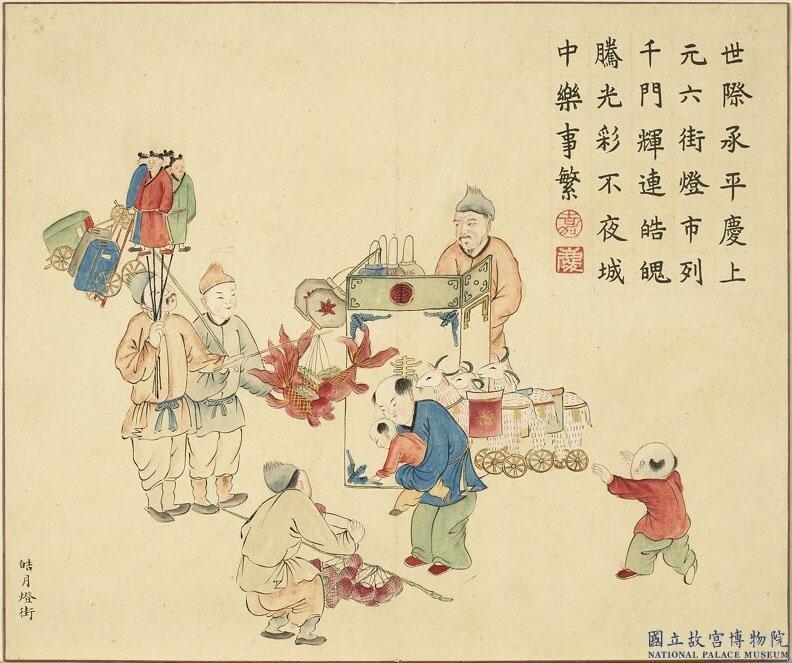 世際承平慶上
元六街燈市列
千門輝連皓魄
騰光彩不夜城
中樂事繁
嘉
慶
皓月燈街
國立故宮博物院
NATIONAL PALACE MUSEUM